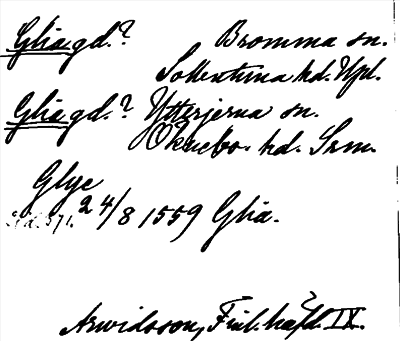 Glia gd.? Bromma sn.
Sollentuna hd. Upl.
Glia gd.? Ytterjerna sn.
Öknebo hd. Srm.
Glye
24/8 1559 Glia.
Arwidsson, Finl. häfd. IX.